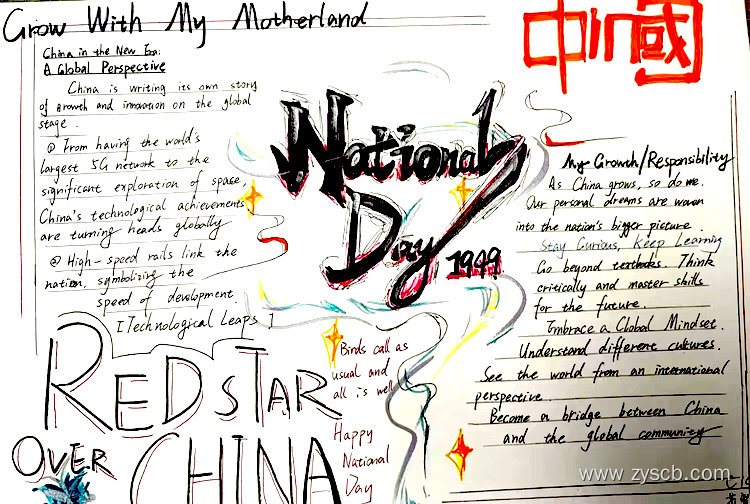 Grow With My Motherland
中国
China in the New Era:
A Global Perspective
China is writing its own story
of growth and innovation on the global
stage.
@ From having the world's
largest 5G network to the
significant exploration of space,
China's technological achievements
are turning heads globally
@ High-speed rails link the
nation, symbolizing the
speed of development
[Technological Leaps]
National
Day
1949
My Growth/Responsibility
As China grows, so do me.
Our personal dreams are woven
into the nation's bigger picture
Stay Curious, Keep Learning
Go beyond textbooks. Think
critically and master skills
for the future.
Embrace a Global Mindset.
Understand different cultures.
See the world from an international
perspective
Become a bridge between China
and the global community
RED STAR
OVER CHINA
Birds call as
usual and
all is well
Happy
National
Day
www.zyscb.com